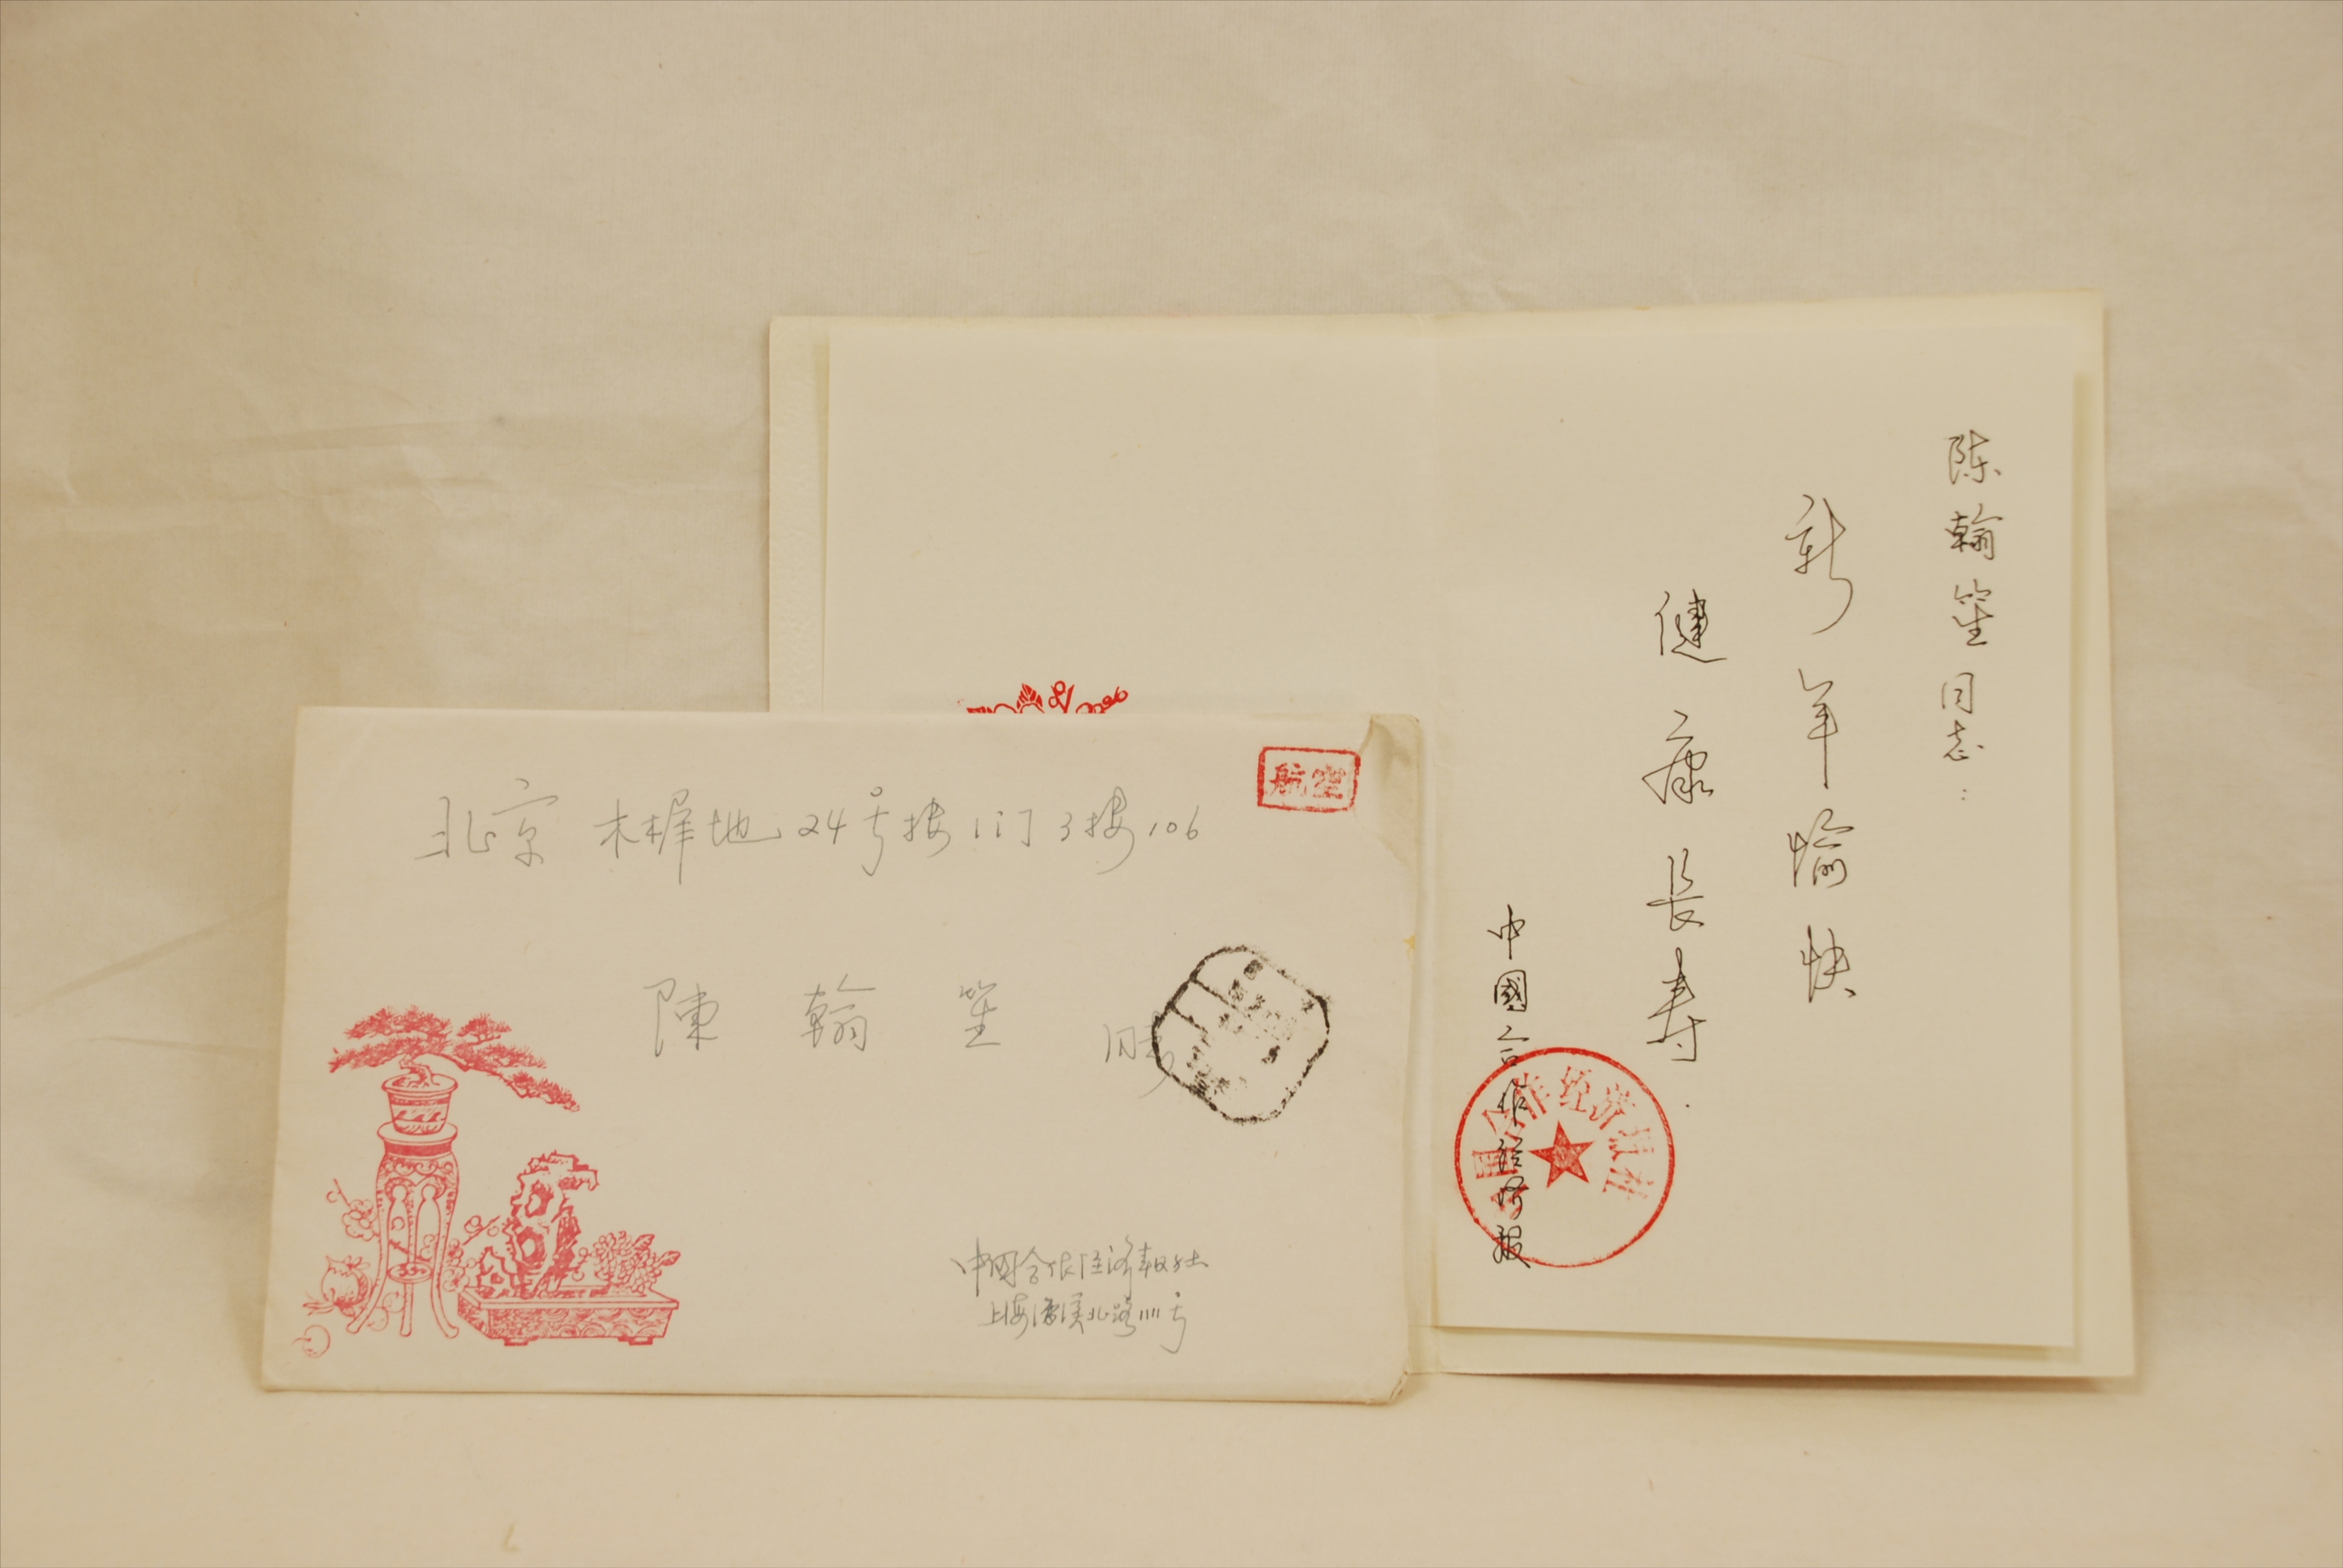 航空
北京 木樨地 24号楼 1门 3楼 106
陳 翰 笙 同志
中国合作经济报社
上海漕溪北路1111号
陈翰笙同志：
新年愉快
健康長寿
中國合作经济报
中国合作经济报社